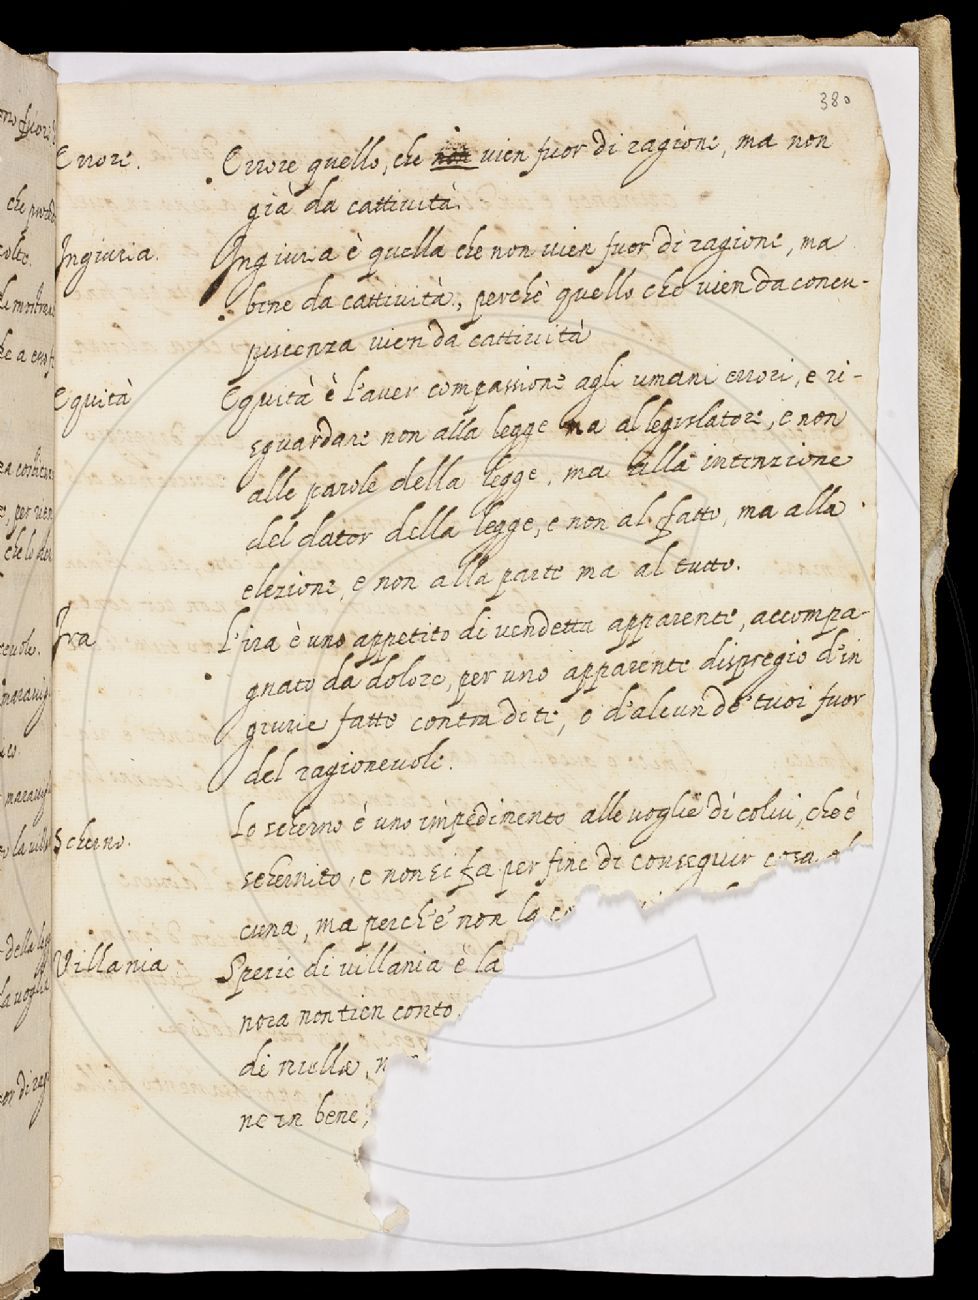 380
Errore. Errore quello, che non vien fuor di ragione, ma non
già da cattività.
Ingiuria. Ingiuria è quella che non vien fuor di ragione, ma
bene da cattività, perchè quello che vien da concu-
piscenza vien da cattività
Equità Equità è l'aver compassione agli umani errori, e ri-
sguardare non alla legge ma al legislatore, e non
alle parole della legge, ma alla intenzione
del dator della legge, e non al fatto, ma alla
elezione, e non alla parte ma al tutto.
Ira L'ira è uno appetito di vendetta apparente, accompa-
gnato da dolore, per uno apparente dispregio d'in
giurie fatte contra di te, o d'alcun de' tuoi fuor
del ragionevole.
Scherno. Lo scherno è uno impedimento alle voglie di colui, che è
schernito, e non si fa per fine di conseguir cosa al
cuna, ma perch'è non la
Villania Sperie di villania è la
nora non tien conto
di nulla,
ne in bene,